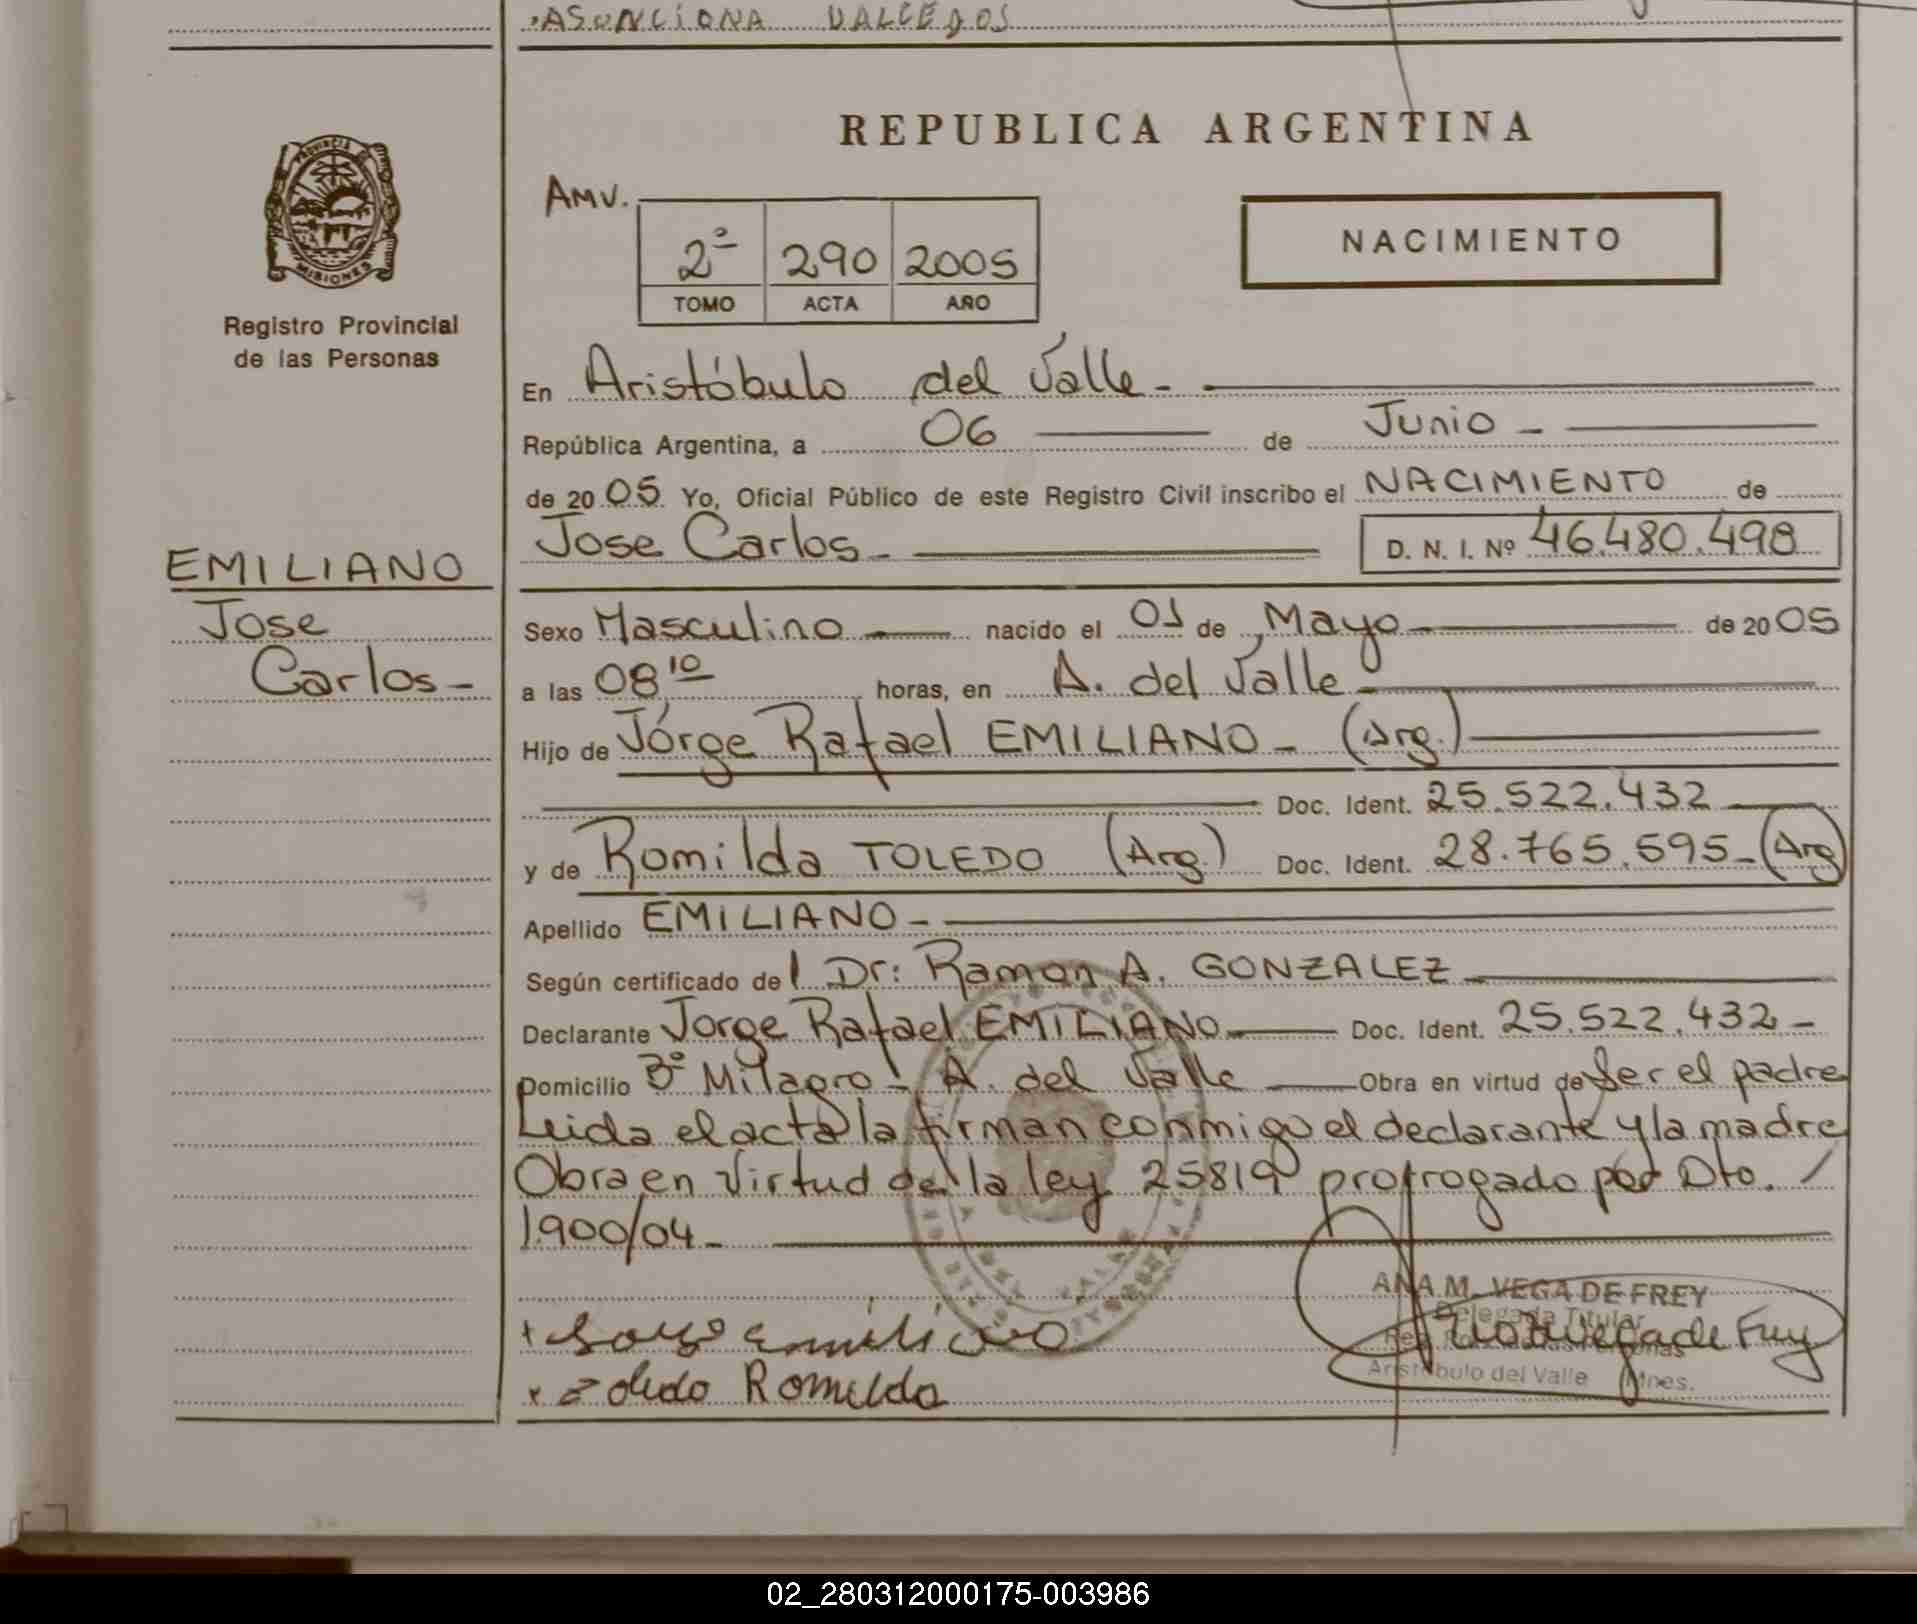 ASONCIONA VALLEJOS
REPUBLICA ARGENTINA
PROVINCIA DE
MISIONES
Registro Provincial
de las Personas
AMV.
2º 290 2005
TOMO ACTA AÑO
NACIMIENTO
En Aristóbulo del Valle -
República Argentina, a 06 de Junio -
de 2005 Yo, Oficial Público de este Registro Civil inscribo el NACIMIENTO de
Jose Carlos - D. N. I. Nº 46.480.498
EMILIANO
Jose
Carlos -
Sexo Masculino nacido el 01 de Mayo de 2005
a las 08 10 horas, en A. del Valle -
Hijo de Jórge Rafael EMILIANO - (Arg.)
Doc. Ident. 25.522.432
y de Romilda TOLEDO (Arg.) Doc. Ident. 28.765.595 - (Arg
Apellido EMILIANO -
Según certificado del Dr: Ramon A. GONZALEZ
Declarante Jorge Rafael EMILIANO Doc. Ident. 25.522.432 -
Domicilio Bº Milagro - A. del Valle Obra en virtud de Ser el padre
Leida el acta la firman conmigo el declarante y la madre
Obra en virtud de la ley 25819 prorrogado por Dto. /
1900/04 -
ANA M. VEGA DE FREY
Delegada Titular
Aristóbulo del Valle Mnes.
+ emiliano
+ Romilda
02_280312000175-003986